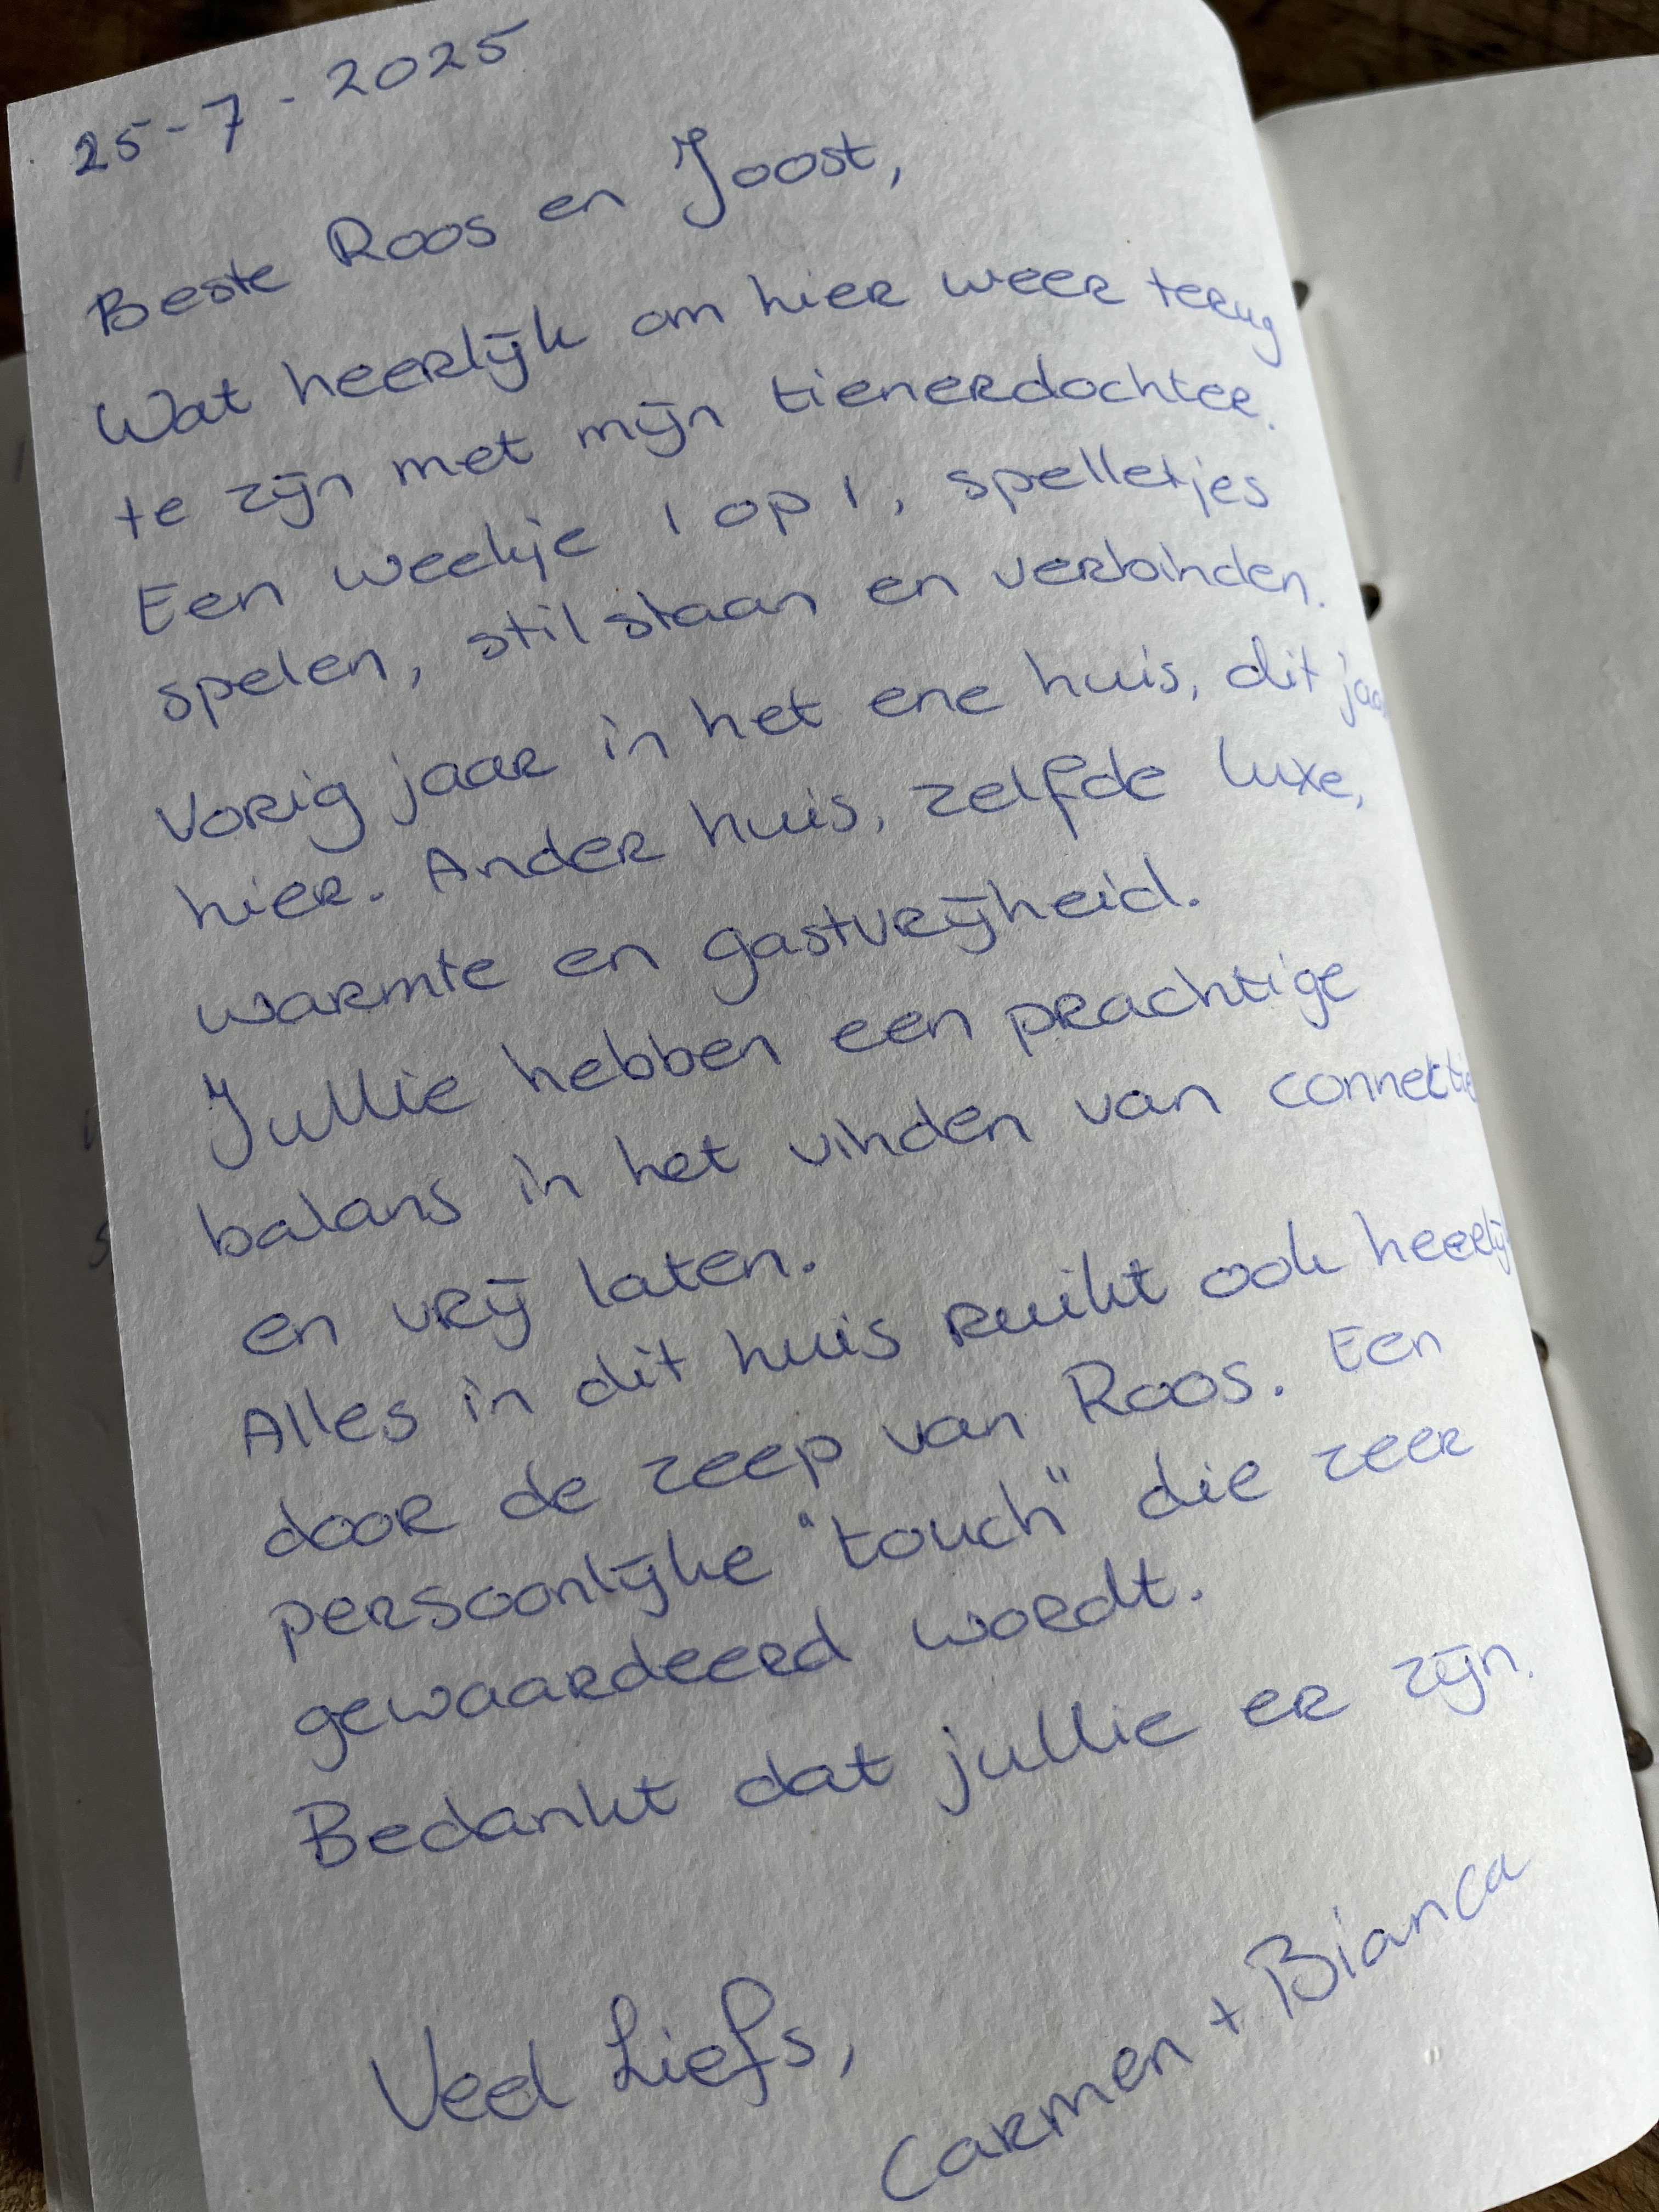 25-7-2025
Beste Roos en Joost,
Wat heerlijk om hier weer terug
te zijn met mijn tienerdochter.
Een weekje 1 op 1, spelletjes
spelen, stilstaan en verbinden.
Vorig jaar in het ene huis, dit jaar
hier. Ander huis, zelfde luxe,
warmte en gastvrijheid.
Jullie hebben een prachtige
balans in het vinden van connectie
en vrij laten.
Alles in dit huis ruikt ook heerlijk
door de zeep van Roos. Een
persoonlijke "touch" die zeer
gewaardeerd wordt.
Bedankt dat jullie er zijn.
Veel Liefs,
Carmen + Bianca